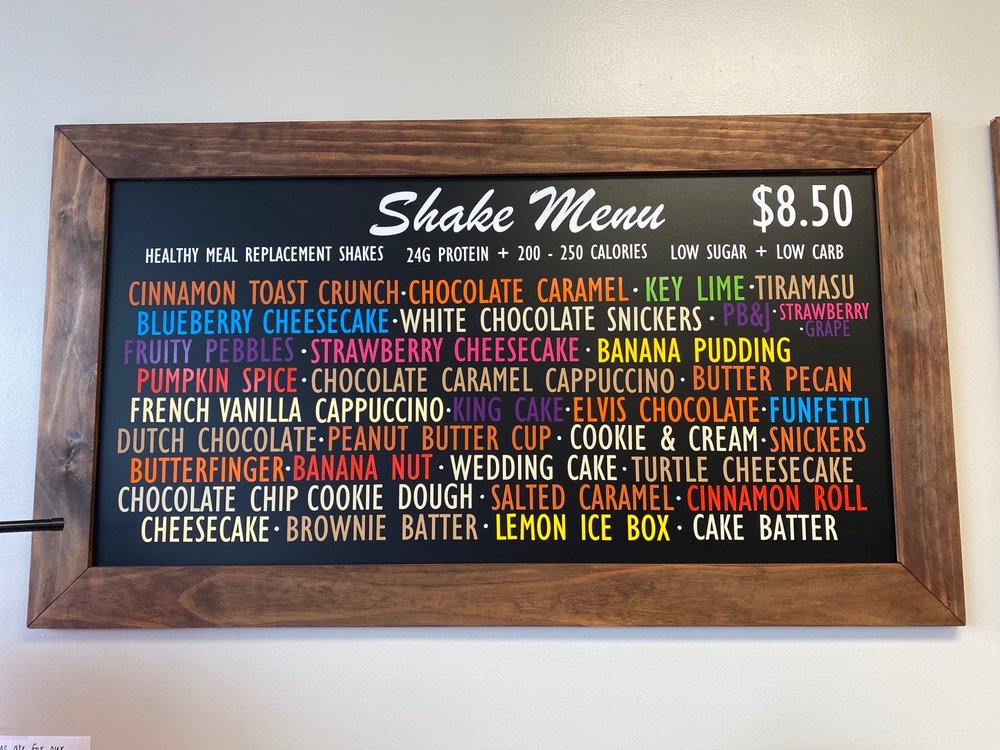 Shake Menu $8.50
HEALTHY MEAL REPLACEMENT SHAKES 24G PROTEIN + 200 - 250 CALORIES LOW SUGAR + LOW CARB
CINNAMON TOAST CRUNCH·CHOCOLATE CARAMEL·KEY LIME·TIRAMASU
BLUEBERRY CHEESECAKE·WHITE CHOCOLATE SNICKERS·PB&J·STRAWBERRY
·GRAPE
FRUITY PEBBLES·STRAWBERRY CHEESECAKE·BANANA PUDDING
PUMPKIN SPICE·CHOCOLATE CARAMEL CAPPUCCINO·BUTTER PECAN
FRENCH VANILLA CAPPUCCINO·KING CAKE·ELVIS CHOCOLATE·FUNFETTI
DUTCH CHOCOLATE·PEANUT BUTTER CUP·COOKIE & CREAM·SNICKERS
BUTTERFINGER·BANANA NUT·WEDDING CAKE·TURTLE CHEESECAKE
CHOCOLATE CHIP COOKIE DOUGH·SALTED CARAMEL·CINNAMON ROLL
CHEESECAKE·BROWNIE BATTER·LEMON ICE BOX·CAKE BATTER
are for our